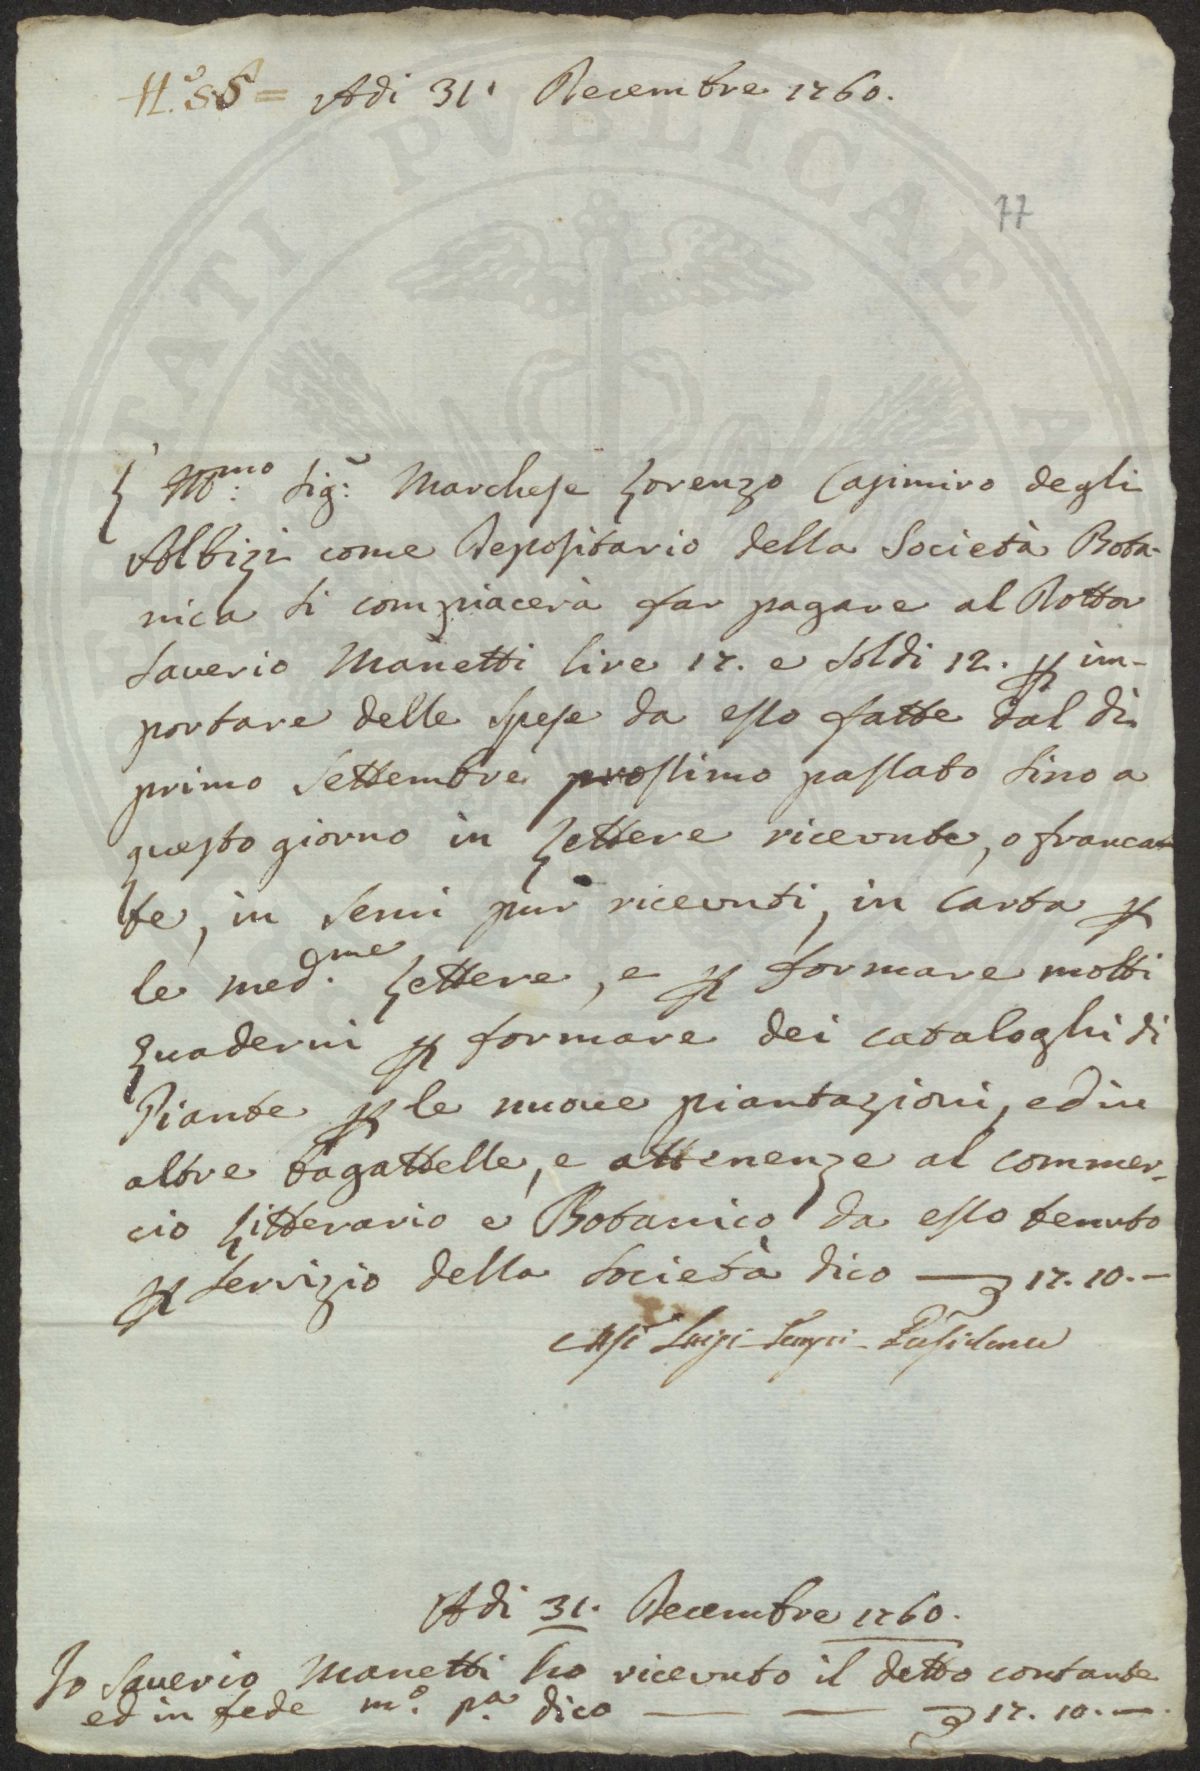 N.º 58 = Adi 31. Decembre 1760.
77
L' Ill.mo Sig.r Marchese Lorenzo Casimiro degli
Albizi come Depositario della Società Bota-
nica si compiacerà far pagare al Dottor
Saverio Manetti lire 17. e soldi 12. p im-
portare delle spese da esso fatte dal dì
primo Settembre prossimo passato sino a
questo giorno in Lettere ricevute, o franca-
te, in semi pur ricevuti, in carta p
le med.me Lettere, e p formare molti
quaderni p formare dei cataloghi di
Piante p le nuove piantazioni, ed in
altre bagattelle, e attenenze al commer-
cio Litterario e Botanico da esso tenuto
p servizio della Società dico — 17. 10. —
Luigi Tempi Presidente
Adi 31. Decembre 1760.
Io Saverio Manetti ho ricevuto il detto contante
ed in fede m.º p.a dico — — 17. 10. —